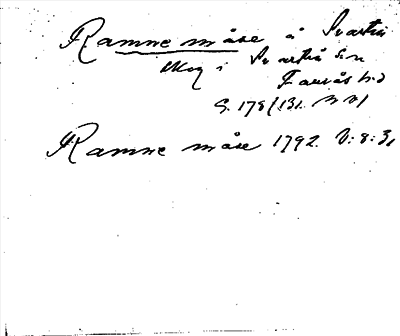 Ramne måse å Svartrå
skog i Svartrå sn
Faurås hd
S. 178/131.
Ramne måse 1792. V:8:3,